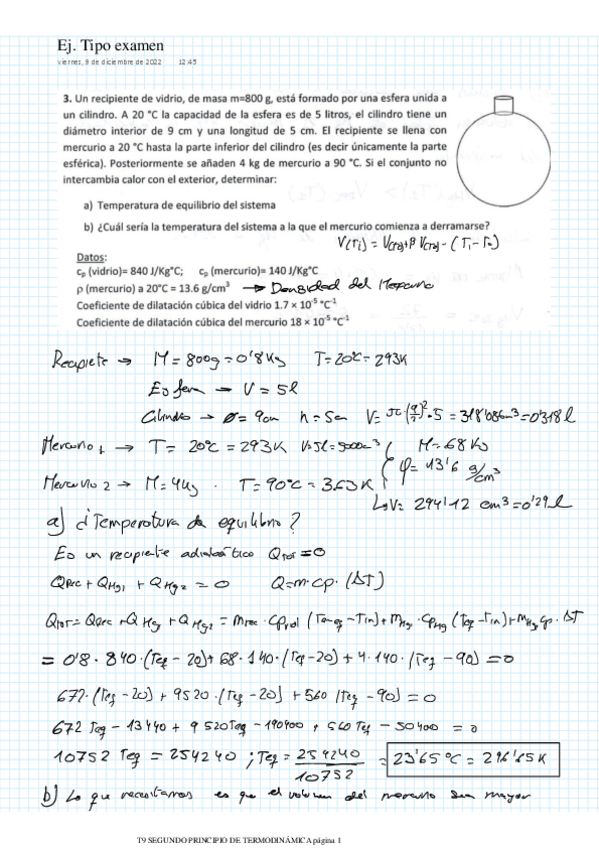 Ej. Tipo examen
viernes, 9 de diciembre de 2022 12:45
3. Un recipiente de vidrio, de masa m=800 g, está formado por una esfera unida a
un cilindro. A 20 °C la capacidad de la esfera es de 5 litros, el cilindro tiene un
diámetro interior de 9 cm y una longitud de 5 cm. El recipiente se llena con
mercurio a 20 °C hasta la parte inferior del cilindro (es decir únicamente la parte
esférica). Posteriormente se añaden 4 kg de mercurio a 90 °C. Si el conjunto no
intercambia calor con el exterior, determinar:
a) Temperatura de equilibrio del sistema
b) ¿Cuál sería la temperatura del sistema a la que el mercurio comienza a derramarse?
Datos:
cp (vidrio)= 840 J/Kg°C; cp (mercurio)= 140 J/Kg°C
ρ (mercurio) a 20°C = 13.6 g/cm³ → Densidad del Mercurio
Coeficiente de dilatación cúbica del vidrio 1.7 × 10⁻⁵ °C⁻¹
Coeficiente de dilatación cúbica del mercurio 18 × 10⁻⁵ °C⁻¹
Recipiente → M = 800g = 0'8 Kg T = 20°C = 293K
Esfera → V = 5l
Cilindro → ø = 9cm h = 5cm V = π·(9/2)²·5 = 318'086cm³ = 0'318 l
Mercurio 1 → T = 20°C = 293K V = 5l = 5000cm³ M = 68 Kg
ρ = 13'6 g/cm³
Mercurio 2 → M = 4Kg · T = 90°C = 363K
↳ V = 294'12 cm³ = 0'29 l
a) ¿Temperatura de equilibrio?
Es un recipiente adiabático QTOT = 0
QRec + QHg1 + QHg2 = 0 Q = m·cp·(ΔT)
QTOT = QRec + QHg + QHg2 = mrec · cp · (Teq - Tin) + mHg · cpHg (Teq - Tin) + mHg cp · ΔT
= 0'8 · 840 · (Teq - 20) + 68 · 140 · (Teq - 20) + 4 · 140 · (Teq - 90) = 0
672 · (Teq - 20) + 9520 · (Teq - 20) + 560 (Teq - 90) = 0
672 Teq - 13440 + 9520 Teq - 190400 + 560 Teq - 50400 = 0
10752 Teq = 254240 ; Teq = 254240/10752 = 23'65 °C = 296'65 K
b) Lo que necesitamos es que el volumen del mercurio sea mayor
T9 SEGUNDO PRINCIPIO DE TERMODINÁMICA página 1